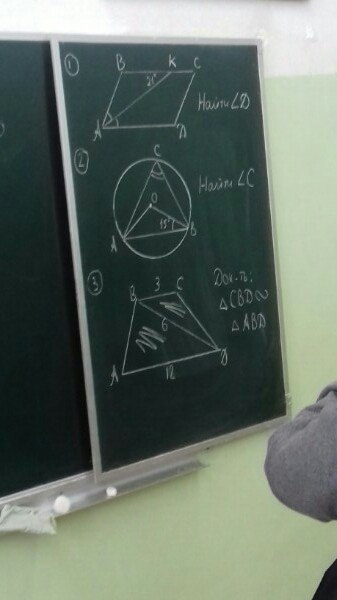 1
B K C
21°
A D
Найти ∠D
2
C
O
15°
A B
Найти ∠C
3
B 3 C
6
A 12 D
Док-ть:
△CBD∞
△ABD